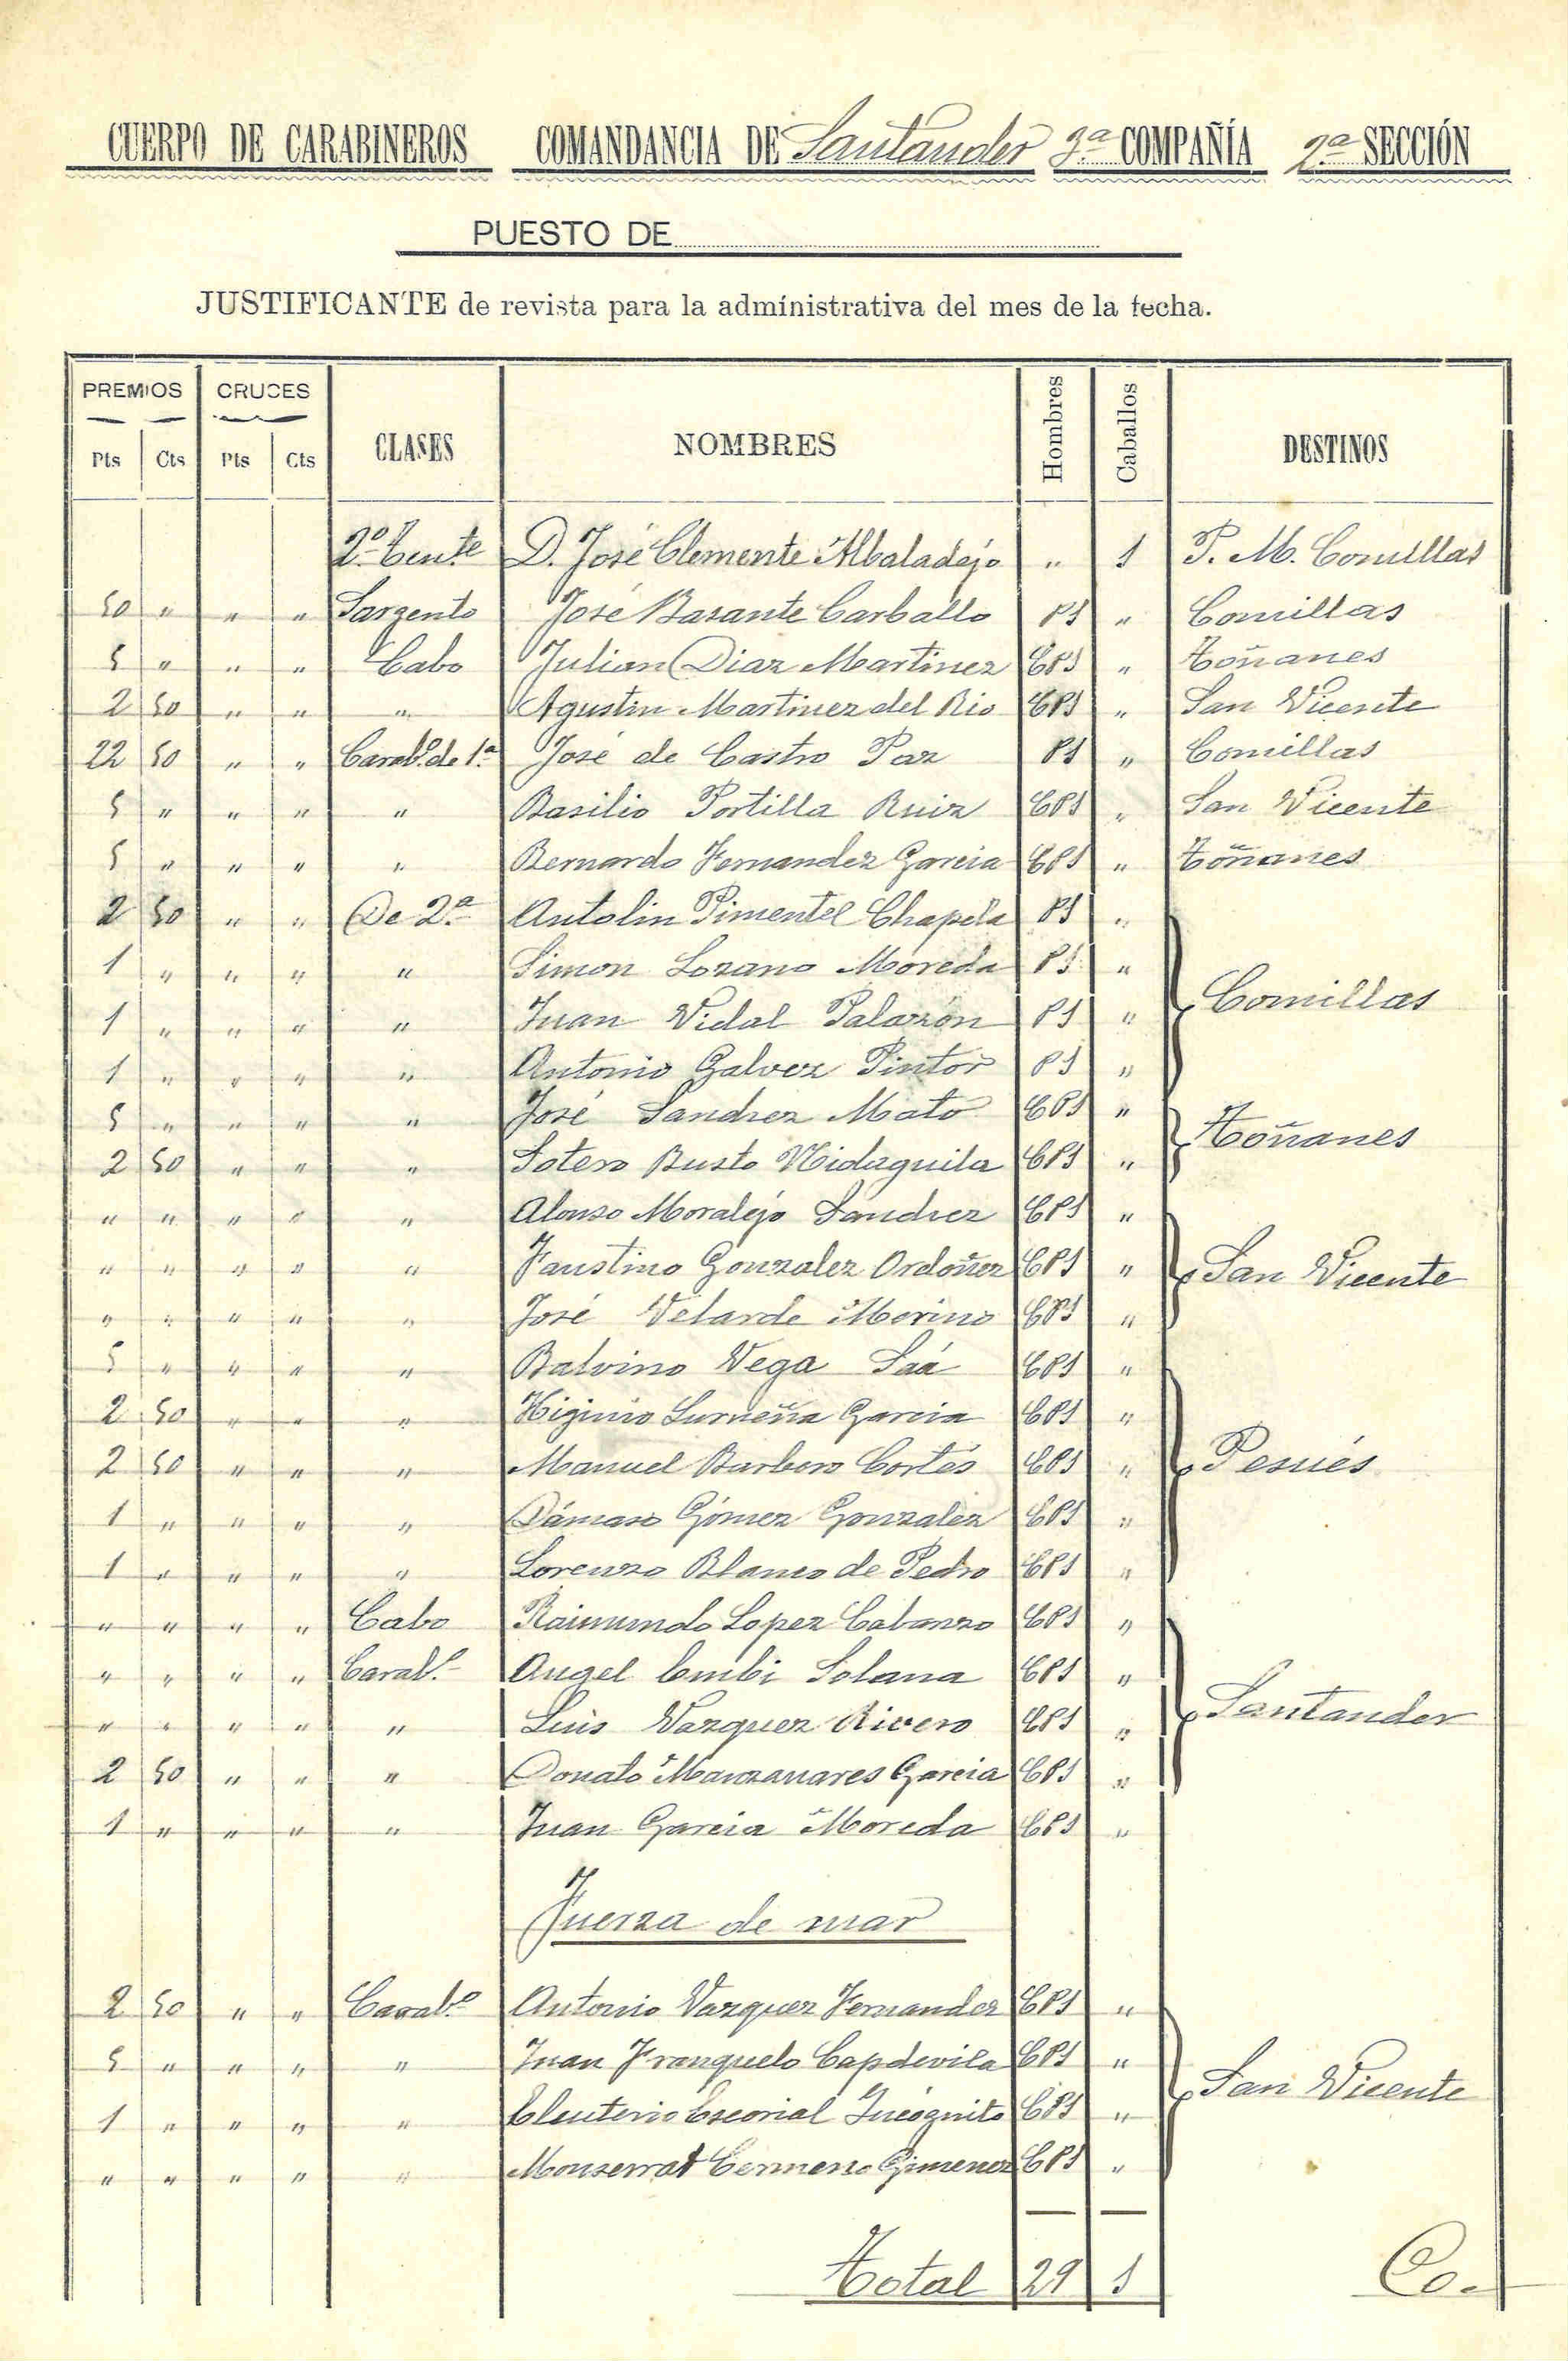 CUERPO DE CARABINEROS COMANDANCIA DE Santander 3ª COMPAÑÍA 2ª SECCIÓN
PUESTO DE
JUSTIFICANTE de revista para la administrativa del mes de la fecha.
PREMIOS CRUCES CLASES NOMBRES Hombres Caballos DESTINOS
Pts Cts Pts Cts
2º Tente D. José Clemente Albaladejo " 1 P. M. Comillas
50 " " " Sargento José Basante Carballo PS " Comillas
5 " " " Cabo Julian Diaz Martinez CPS " Toñanes
2 50 " " " Agustin Martinez del Rio CPS " San Vicente
22 50 " " Carabº de 1ª José de Castro Paz PS " Comillas
5 " " " " Basilio Portilla Ruiz CPS " San Vicente
5 " " " " Bernardo Fernandez Garcia CPS " Toñanes
2 50 " " De 2ª Antolin Pimentel Chapela PS "
1 " " " " Simon Lozano Moreda PS "
Comillas
1 " " " " Juan Vidal Palazón PS "
1 " " " " Antonio Galvez Pintor PS "
5 " " " " José Sanchez Mato CPS "
Toñanes
2 50 " " " Sotero Busto CPS "
" " " " " Alonso Moralejo Sanchez CPS "
" " " " " Faustino Gonzalez Ordoñez CPS " San Vicente
" " " " " José Velarde Merino CPS "
5 " " " " Balvino Vega Saá CPS "
2 50 " " " Higinio Garcia CPS "
2 50 " " " Manuel Barbero Cortés CPS " Pesués
1 " " " " Dámaso Gómez Gonzalez CPS "
1 " " " " Lorenzo Blanco de Pedro CPS "
" " " " Cabo Raimundo Lopez Cabanzo CPS "
" " " " Carabº Angel Solana CPS "
Santander
" " " " " Luis Vazquez Rivero CPS "
2 50 " " " Donato Manzanares Garcia CPS "
1 " " " " Juan Garcia Moreda CPS "
Fuerza de mar
2 50 " " Carabº Antonio Vazquez Fernandez CPS "
5 " " " " Juan Franquelo Capdevila CPS "
San Vicente
1 " " " " Eleuterio Escorial Incógnito CPS "
" " " " " Monserrat Cermeno Gimenez CPS "
Total 29 1